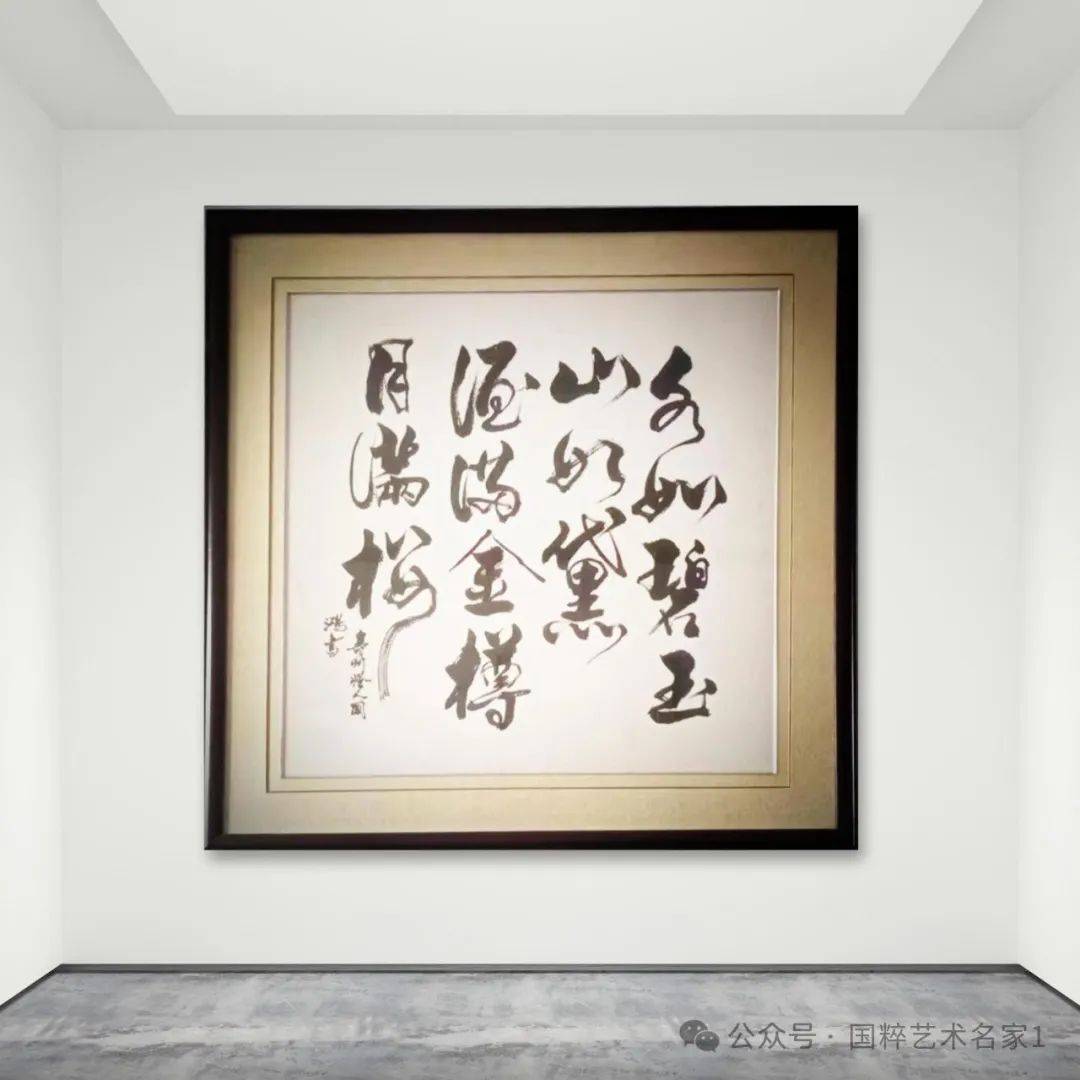 水如碧玉
山如黛
酒满金樽
月满楼
鸿书
公众号 · 国粹艺术名家1